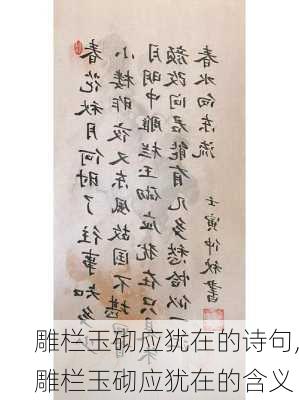 春花秋月何时了往事知多少
小楼昨夜又东風故国不堪
月明中雕栏玉砌应犹在只是朱
颜改问君能有几多愁恰似一
春水向东流
壬寅仲秋書
雕栏玉砌应犹在的诗句,
雕栏玉砌应犹在的含义